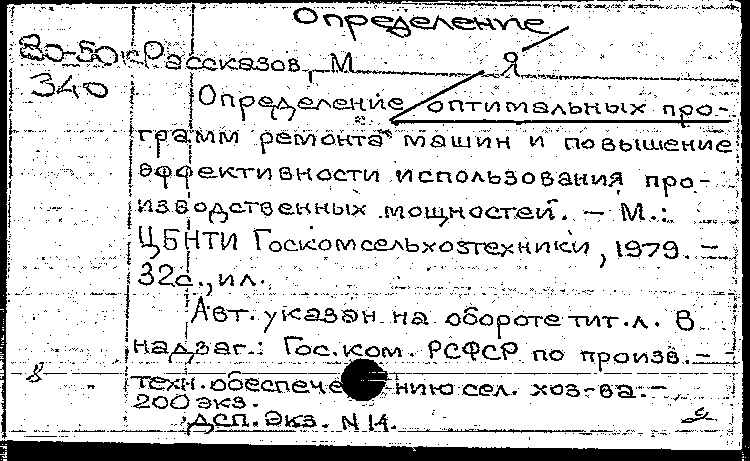 Определение
80-50к Рассказов, М Я
340
Определение оптимальных про-
грамм ремонта машин и повышение
эффективности использования про-
изводственных мощностей. – М.:
ЦБНТИ Госкомсельхозтехники, 1979. –
32с., ил.
Авт. указан на обороте тит. л. В
надзаг.: Гос. ком. РСФСР по произв. –
техн. обеспечению сел. хоз-ва. –
200 экз.
ДСП. Экз. N 14.